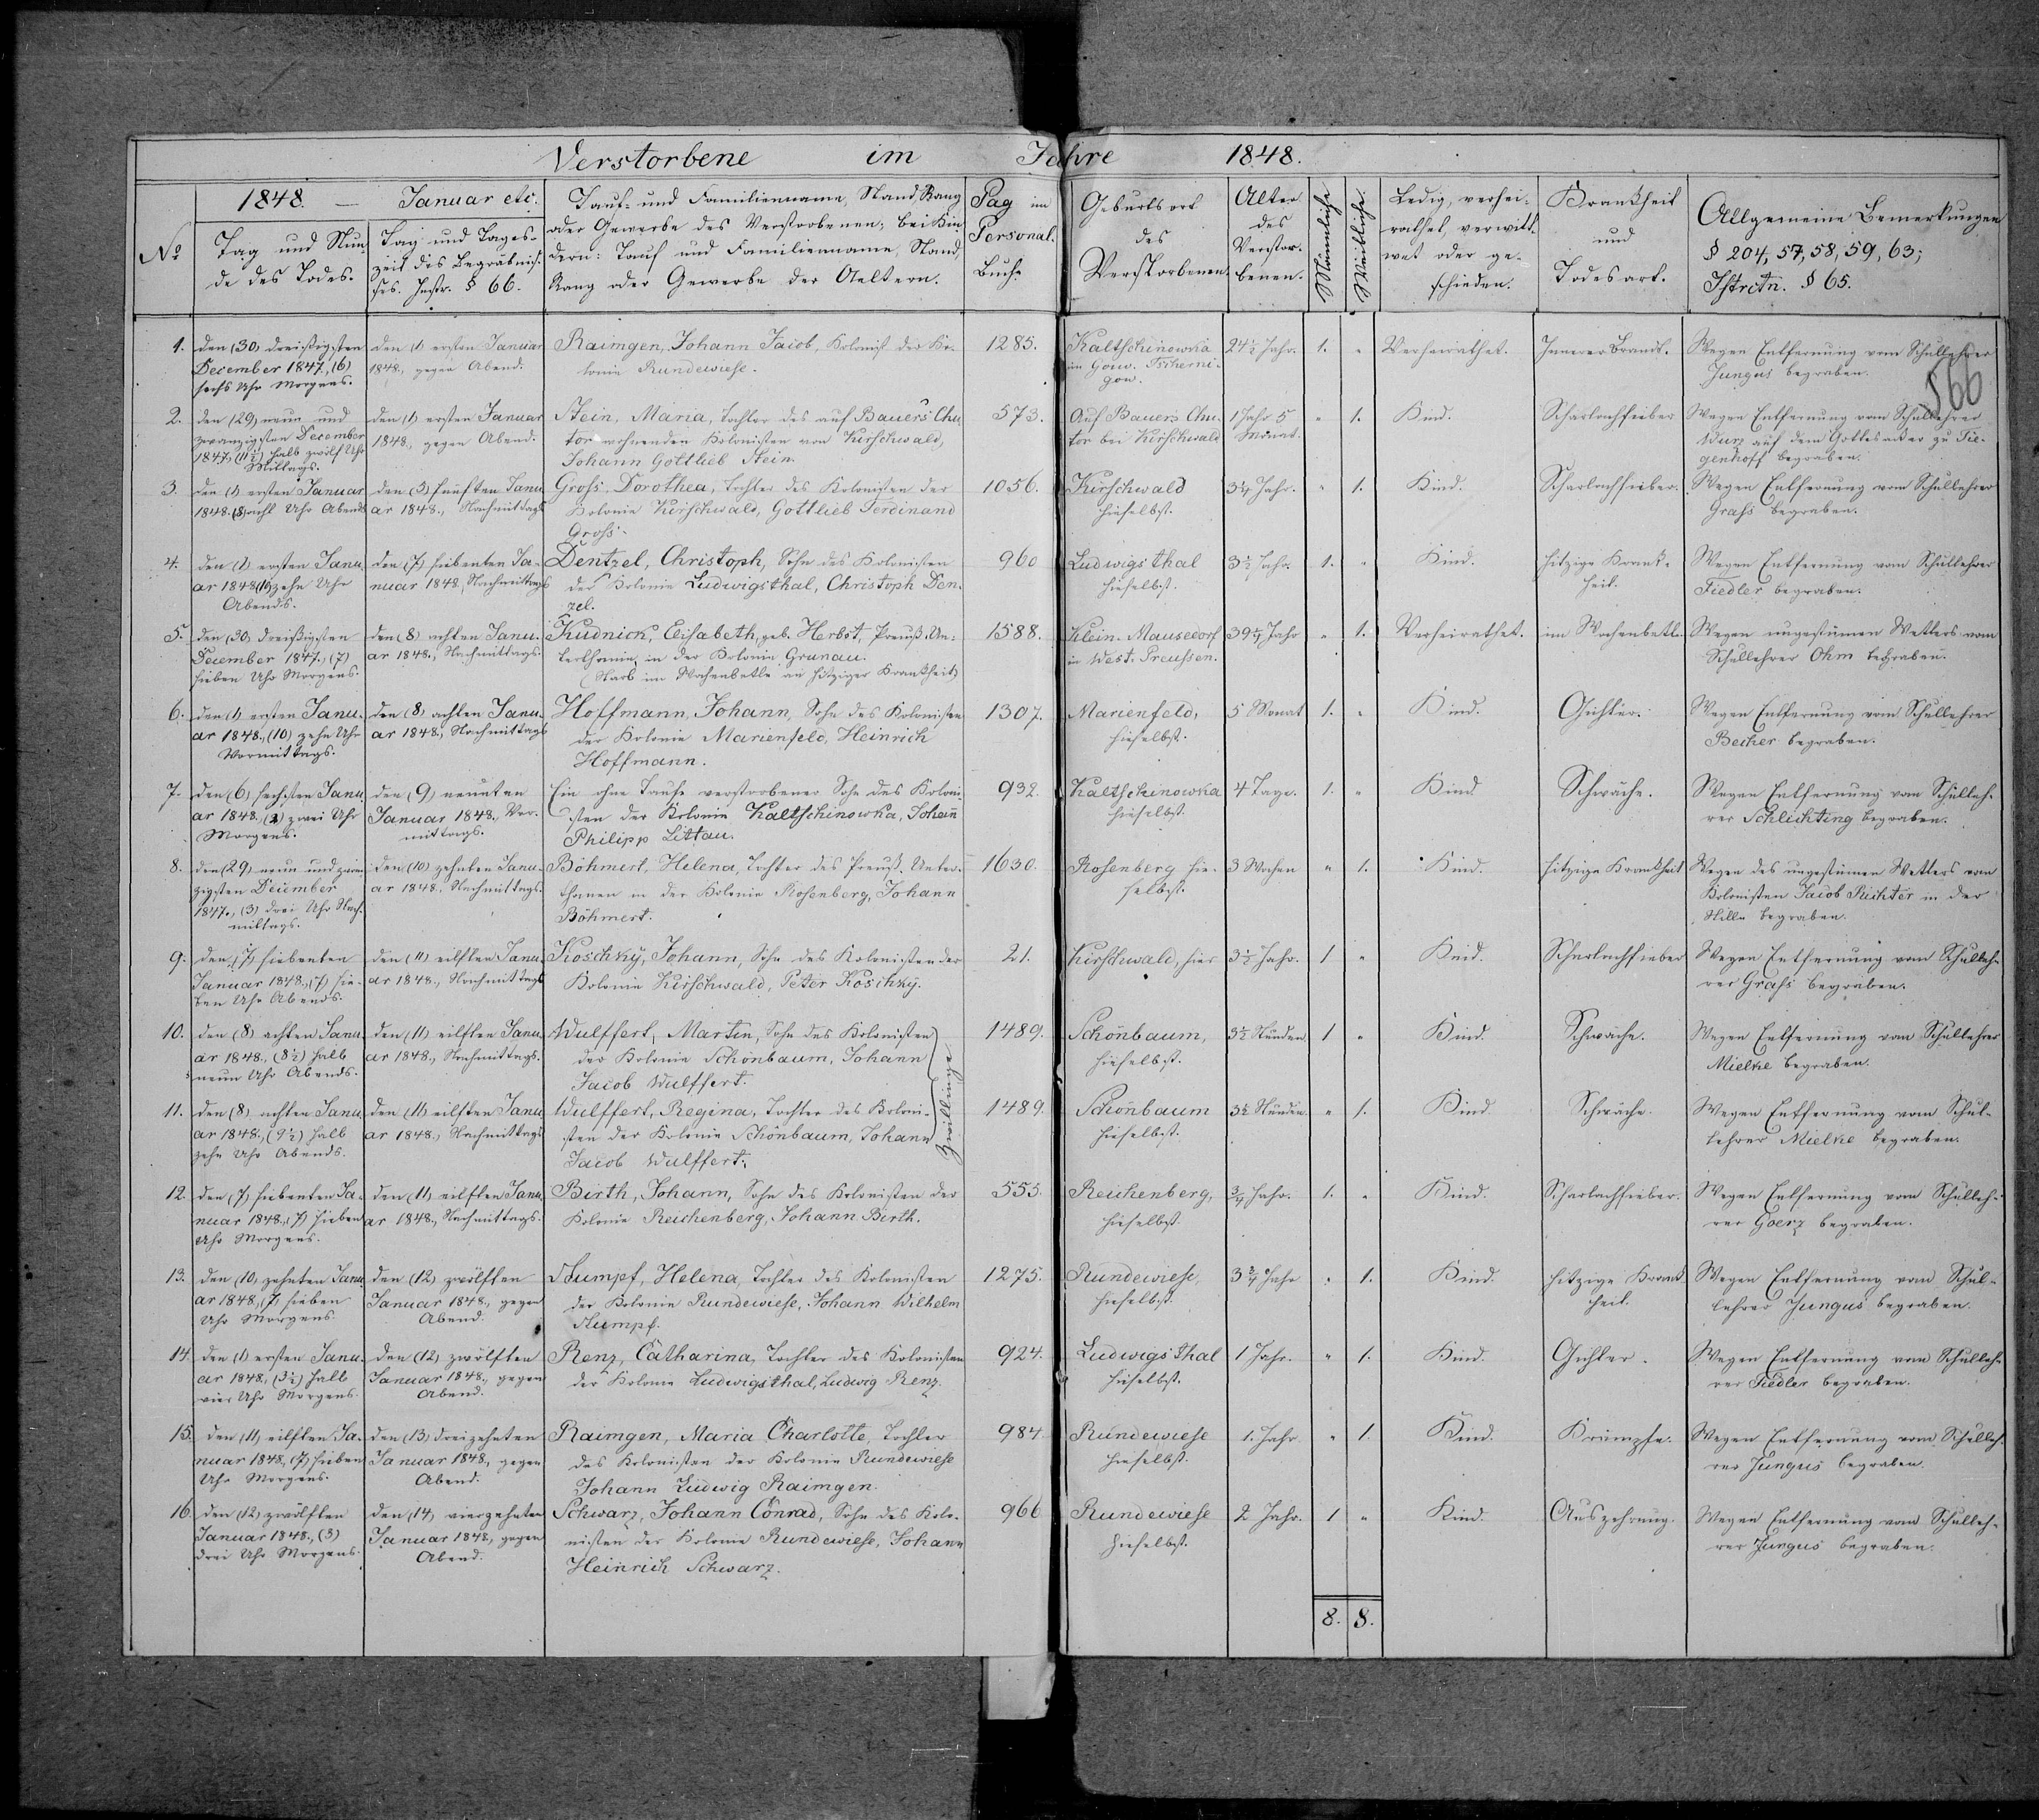 Verstorbene im Jahre 1848.
566
1848. — Januar etc.
No
Tag und Stun-
de des Todes.
Tag und Tages-
zeit des Begräbnis-
ses. Instr. § 66.
Tauf- und Familienname, Stand, Rang
oder Gewerbe des Verstorbenen; bei Kin-
dern: Tauf und Familienname, Stand,
Rang oder Gewerbe der Aeltern.
Pag im
Personal-
Buche
Geburtsort
des
Verstorbenen.
Alter
des
Verstor-
benen.
Männliche
Weibliche.
Ledig, verhei-
rathet, verwitt-
wet oder ge-
schieden.
Krankheit
und
Todesart.
Allgemeine Bemerkungen
§ 204, 57, 58, 59, 63;
Istrctn. § 65.
1. den (30) dreißigsten
December 1847, (6)
sechs Uhr Morgens.
den (1) ersten Januar
1848., gegen Abend.
Raimgen, Johann Jacob, Kolonist der Ko-
lonie Rundewiese.
1285.
Kaltschinowka
im Gouv. Tscherni-
gow.
24½ Jahr. 1. „
Verheirathet.
Innerer Brand.
Wegen Entfernung vom Schullehrer
Jungus begraben.
2. den (29) neun und
zwanzigsten December
1847, (11½) halb zwölf Uhr
Mittags.
den (1) ersten Januar
1848., gegen Abend.
Stein, Maria, Tochter des auf Bauers Chu-
tor wohnenden Kolonisten von Kirschwald,
Johann Gottlieb Stein.
573.
Auf Bauers Chu-
tor bei Kirschwald
1 Jahr 5
Monat.
„ 1.
Kind.
Scharlachfieber
Wegen Entfernung vom Schullehrer
Wurz auf dem Gottesacker zu Tie-
genhoff begraben.
3. den (1) ersten Januar
1848. (8) acht Uhr Abends
den (5) fünften Janu-
ar 1848., Nachmittags
Gross, Dorothea, Tochter des Kolonisten der
Kolonie Kirschwald, Gottlieb Ferdinand
Gross.
1056.
Kirschwald
hieselbst.
3¼ Jahr. „ 1.
Kind.
Scharlachfieber.
Wegen Entfernung vom Schullehrer
Grafs begraben.
4. den (1) ersten Janu-
ar 1848 (10) zehn Uhr
Abends.
den (7) siebenten Ja-
nuar 1848, Nachmittags
Dentzel, Christoph, Sohn des Kolonisten
der Kolonie Ludwigsthal, Christoph Den-
zel.
960
Ludwigsthal
hieselbst.
3½ Jahr. 1. „
Kind.
hitzige Krank-
heit.
Wegen Entfernung vom Schullehrer
Fiedler begraben.
5. den (30) dreißigsten
December 1847., (7)
sieben Uhr Morgens.
den (8) achten Janu-
ar 1848., Nachmittags.
Kudnick, Elisabeth, geb. Herbst, Preuß. Un-
terthanin, in der Kolonie Grunau.
(Starb im Wochenbette an hitziger Krankheit)
1588.
Klein-Mausdorf
in West-Preussen.
39¼ Jahr „ 1.
Verheirathet.
im Wochenbette.
Wegen ungestümen Wetters vom
Schullehrer Ohm begraben.
6. den (1) ersten Janu-
ar 1848., (10) zehn Uhr
Vormittags.
den (8) achten Janu-
ar 1848., Nachmittags
Hoffmann, Johann, Sohn des Kolonisten
der Kolonie Marienfeld, Heinrich
Hoffmann.
1307.
Marienfeld,
hieselbst.
5 Monat 1. „
Kind.
Gichter.
Wegen Entfernung vom Schullehrer
Becher begraben.
7. den (6) sechsten Janu-
ar 1848. (2) zwei Uhr
Morgens.
den (9) neunten
Januar 1848., Vor-
mittags.
Ein ohne Taufe verstorbener Sohn des Koloni-
sten der Kolonie Kaltschinowka, Johann
Philipp Littau.
932.
Kaltschinowka
hieselbst.
4 Tage. 1. „
Kind
Schwäche.
Wegen Entfernung vom Schulleh-
rer Schlichting begraben.
8. den (29) neun und zwan-
zigsten December
1847., (3) drei Uhr Nach-
mittags.
den (10) zehnten Janu-
ar 1848., Nachmittags.
Böhmert, Helena, Tochter des Preuß. Unter-
thanen in der Kolonie Rosenberg, Johann
Böhmert.
1630.
Rosenberg hie-
selbst.
3 Wochen „ 1.
Kind.
hitzige Krankheit
Wegen des ungestümen Wetters vom
Kolonisten Jacob Richter in der
Stille begraben.
9. den (7) siebenten
Januar 1848., (7) sie-
ben Uhr Abends.
den (11) eilften Janu-
ar 1848., Nachmittags
Koschky, Johann, Sohn des Kolonisten der
Kolonie Kirschwald, Peter Koschky.
21.
Kirschwald, hier
3½ Jahr. 1 „
Kind.
Scharlachfieber
Wegen Entfernung vom Schulleh-
rer Grafs begraben.
10. den (8) achten Janu-
ar 1848., (8½) halb
neun Uhr Abends.
den (11) eilften Janu-
ar 1848., Nachmittags.
Wulffert, Martin, Sohn des Kolonisten
der Kolonie Schönbaum, Johann
Jacob Wulffert.
Zwillinge
1489.
Schönbaum,
hieselbst.
3½ Stunden 1 „
Kind.
Schwäche.
Wegen Entfernung vom Schullehrer
Mielke begraben.
11. den (8) achten Janu-
ar 1848., (9½) halb
zehn Uhr Abends.
den (11) eilften Janu-
ar 1848., Nachmittags
Wulffert, Regina, Tochter des Koloni-
sten der Kolonie Schönbaum, Johann
Jacob Wulffert.
1489.
Schönbaum
hieselbst.
3½ Stunden „ 1.
Kind.
Schwäche.
Wegen Entfernung vom Schul-
lehrer Mielke begraben.
12. den (7) siebenten Ja-
nuar 1848., (7) sieben
Uhr Morgens.
den (11) eilften Janu-
ar 1848., Nachmittags.
Birth, Johann, Sohn des Kolonisten der
Kolonie Reichenberg, Johann Birth.
555.
Reichenberg,
hieselbst.
¾ Jahr. 1. „
Kind.
Scharlachfieber.
Wegen Entfernung vom Schulleh-
rer Goerz begraben.
13. den (10) zehnten Janu-
ar 1848, (7) sieben
Uhr Morgens.
den (12) zwölften
Januar 1848., gegen
Abend.
Stumpf, Helena, Tochter des Kolonisten
der Kolonie Rundewiese, Johann Wilhelm
Stumpf.
1275.
Rundewiese,
hieselbst.
3¾ Jahr „ 1.
Kind.
hitzige Krank-
heit.
Wegen Entfernung vom Schul-
lehrer Jungus begraben.
14. den (1) ersten Janu-
ar 1848, (3½) halb
vier Uhr Morgens.
den (12) zwölften
Januar 1848., gegen
Abend.
Renz, Catharina, Tochter des Kolonisten
der Kolonie Ludwigsthal, Ludwig Renz.
924.
Ludwigsthal
hieselbst.
1 Jahr. „ 1.
Kind.
Gichter.
Wegen Entfernung vom Schulleh-
rer Fiedler begraben.
15. den (11) eilften Ja-
nuar 1848, (7) sieben
Uhr Morgens.
den (13) dreizehnten
Januar 1848, gegen
Abend.
Raimgen, Maria Charlotte, Tochter
des Kolonisten der Kolonie Rundewiese
Johann Ludwig Raimgen.
984.
Rundewiese
hieselbst.
1. Jahr „ 1.
Kind.
Krämpfe.
Wegen Entfernung vom Schulleh-
rer Jungus begraben.
16. den (12) zwölften
Januar 1848., (3)
drei Uhr Morgens.
den (14) vierzehnten
Januar 1848, gegen
Abend.
Schwarz, Johann Conrad, Sohn des Kolo-
nisten der Kolonie Rundewiese, Johann
Heinrich Schwarz.
966
Rundewiese
hieselbst.
2 Jahr. 1 „
Kind.
Auszehrung.
Wegen Entfernung vom Schulleh-
rer Jungus begraben.
8. 8.